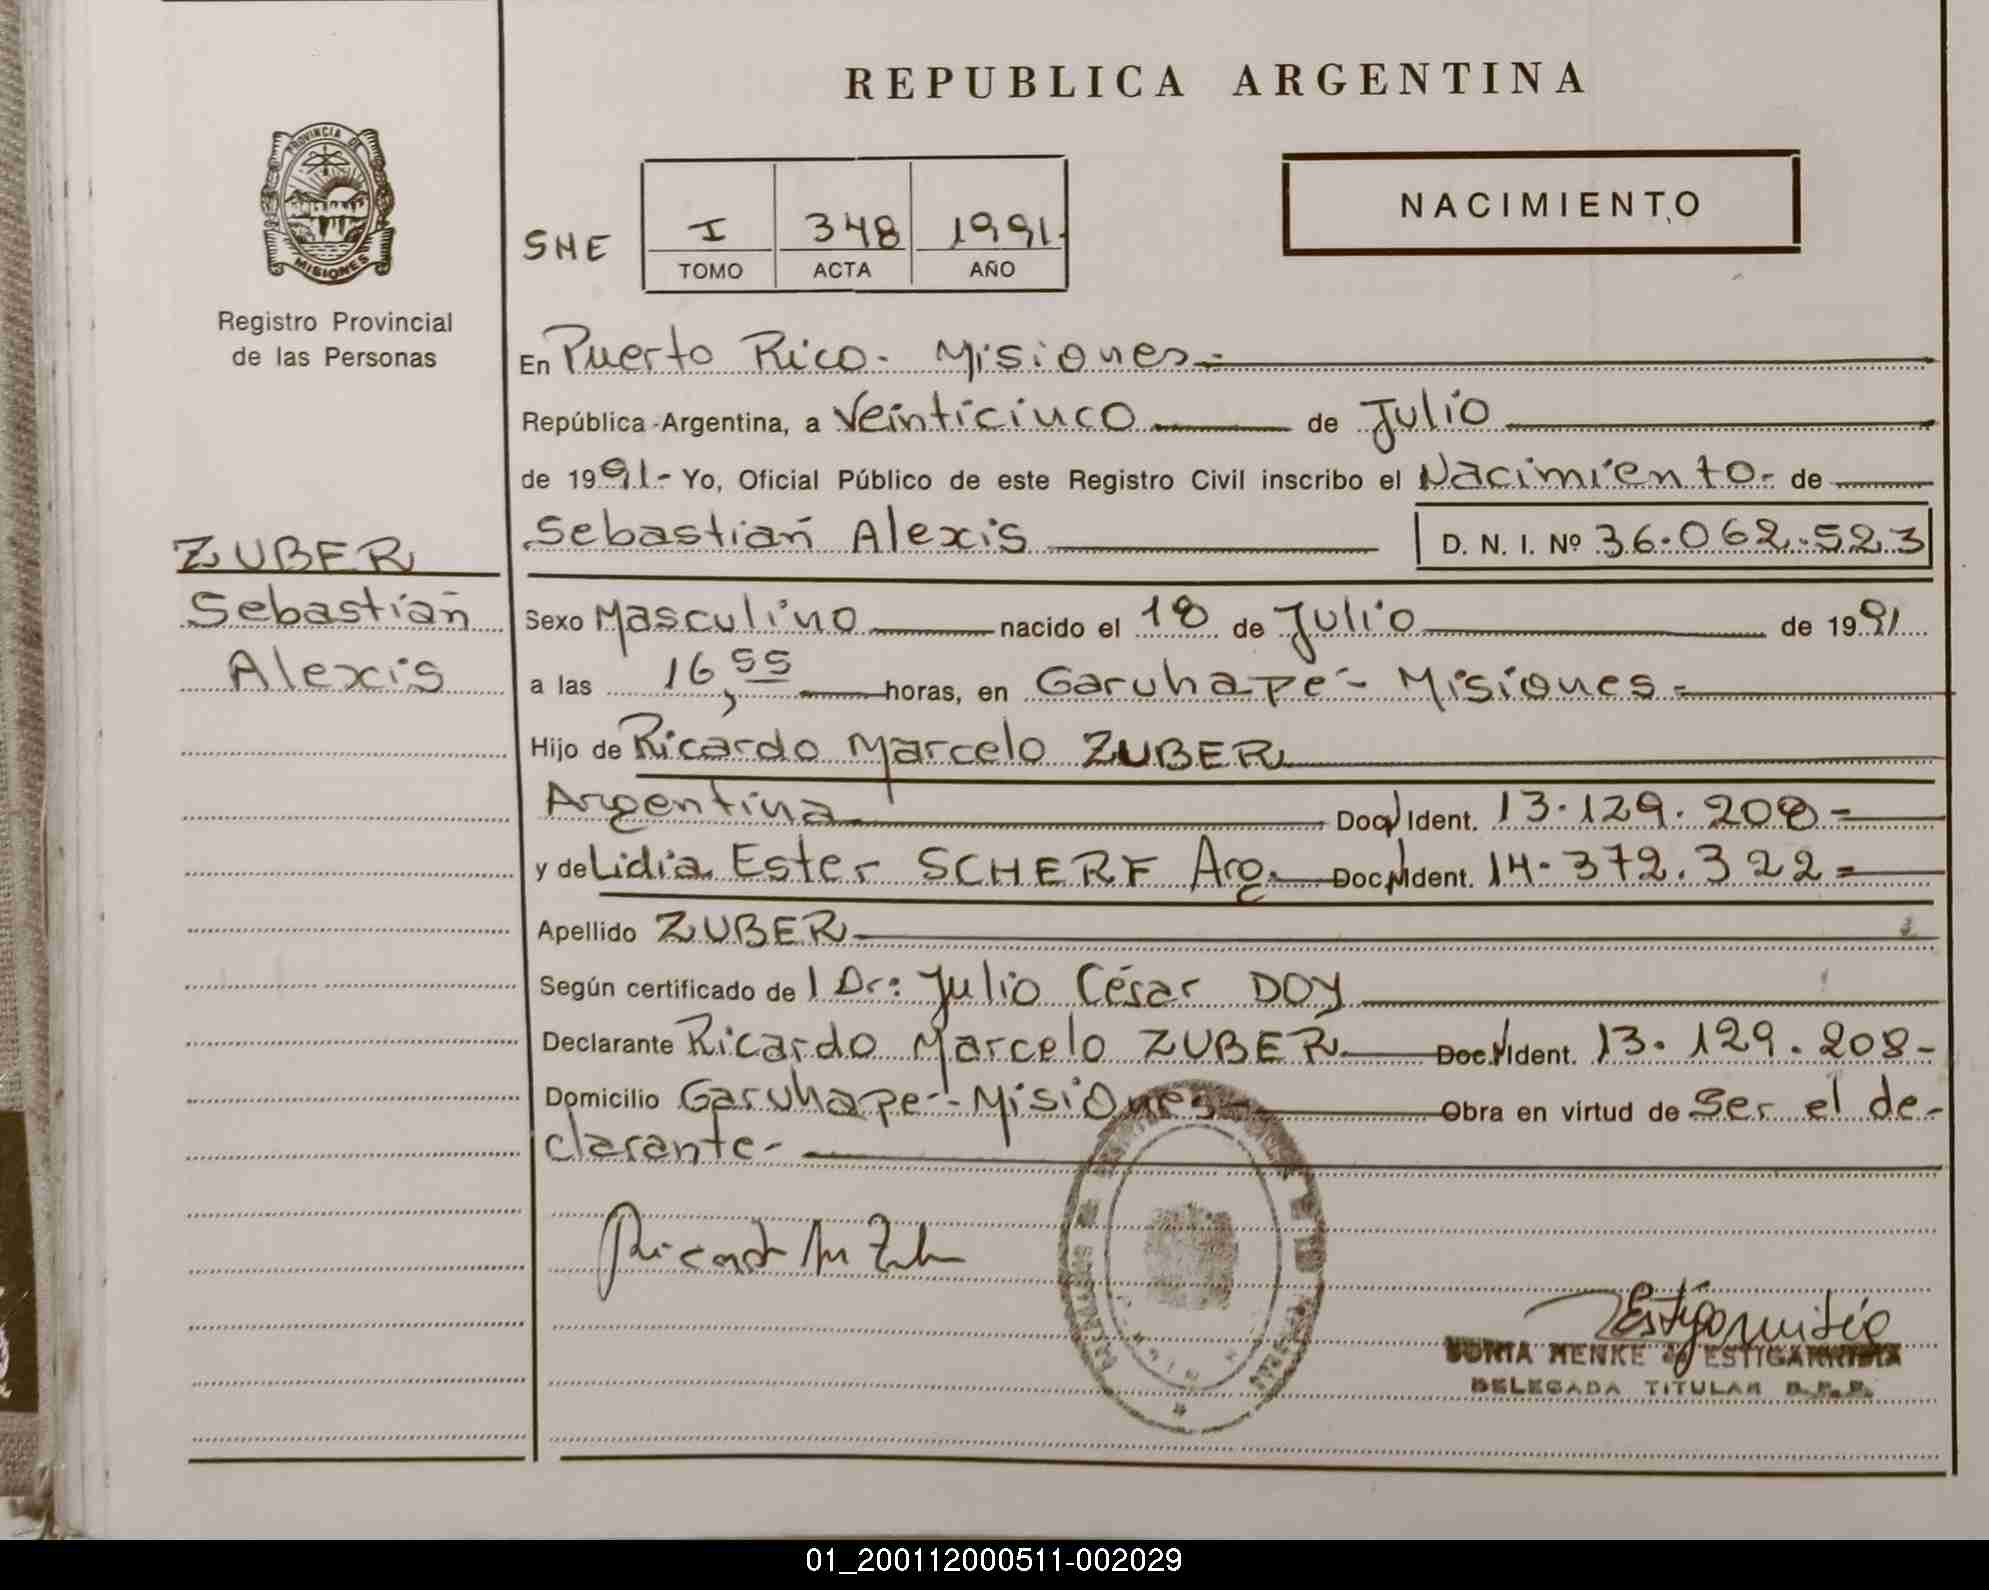 REPUBLICA ARGENTINA
PROVINCIA DE
MISIONES
Registro Provincial
de las Personas
NACIMIENTO
SHE
I 348 1991.
TOMO ACTA AÑO
En Puerto Rico.- Misiones.-
República Argentina, a Veinticinco de Julio
de 1991.- Yo, Oficial Público de este Registro Civil inscribo el Nacimiento.- de
Sebastián Alexis D. N. I. Nº 36.062.523
ZUBER
Sebastián
Alexis
Sexo Masculino nacido el 18 de Julio de 1991
a las 16,55 horas, en Garuhapé- Misiones.-
Hijo de Ricardo Marcelo ZUBER
Argentina Doc. Ident. 13.129.208-
y de Lidia Ester SCHERF Arg. Doc. Ident. 14.372.322-
Apellido ZUBER
Según certificado de l Dr: Julio César DOY
Declarante Ricardo Marcelo ZUBER Doc. Ident. 13.129.208-
Domicilio Garuhapé-Misiones- Obra en virtud de Ser el de-
clarante-
Ricardo M Zuber
SONIA MENKE de ESTIGARRIBIA
DELEGADA TITULAR R.P.P.
01_200112000511-002029